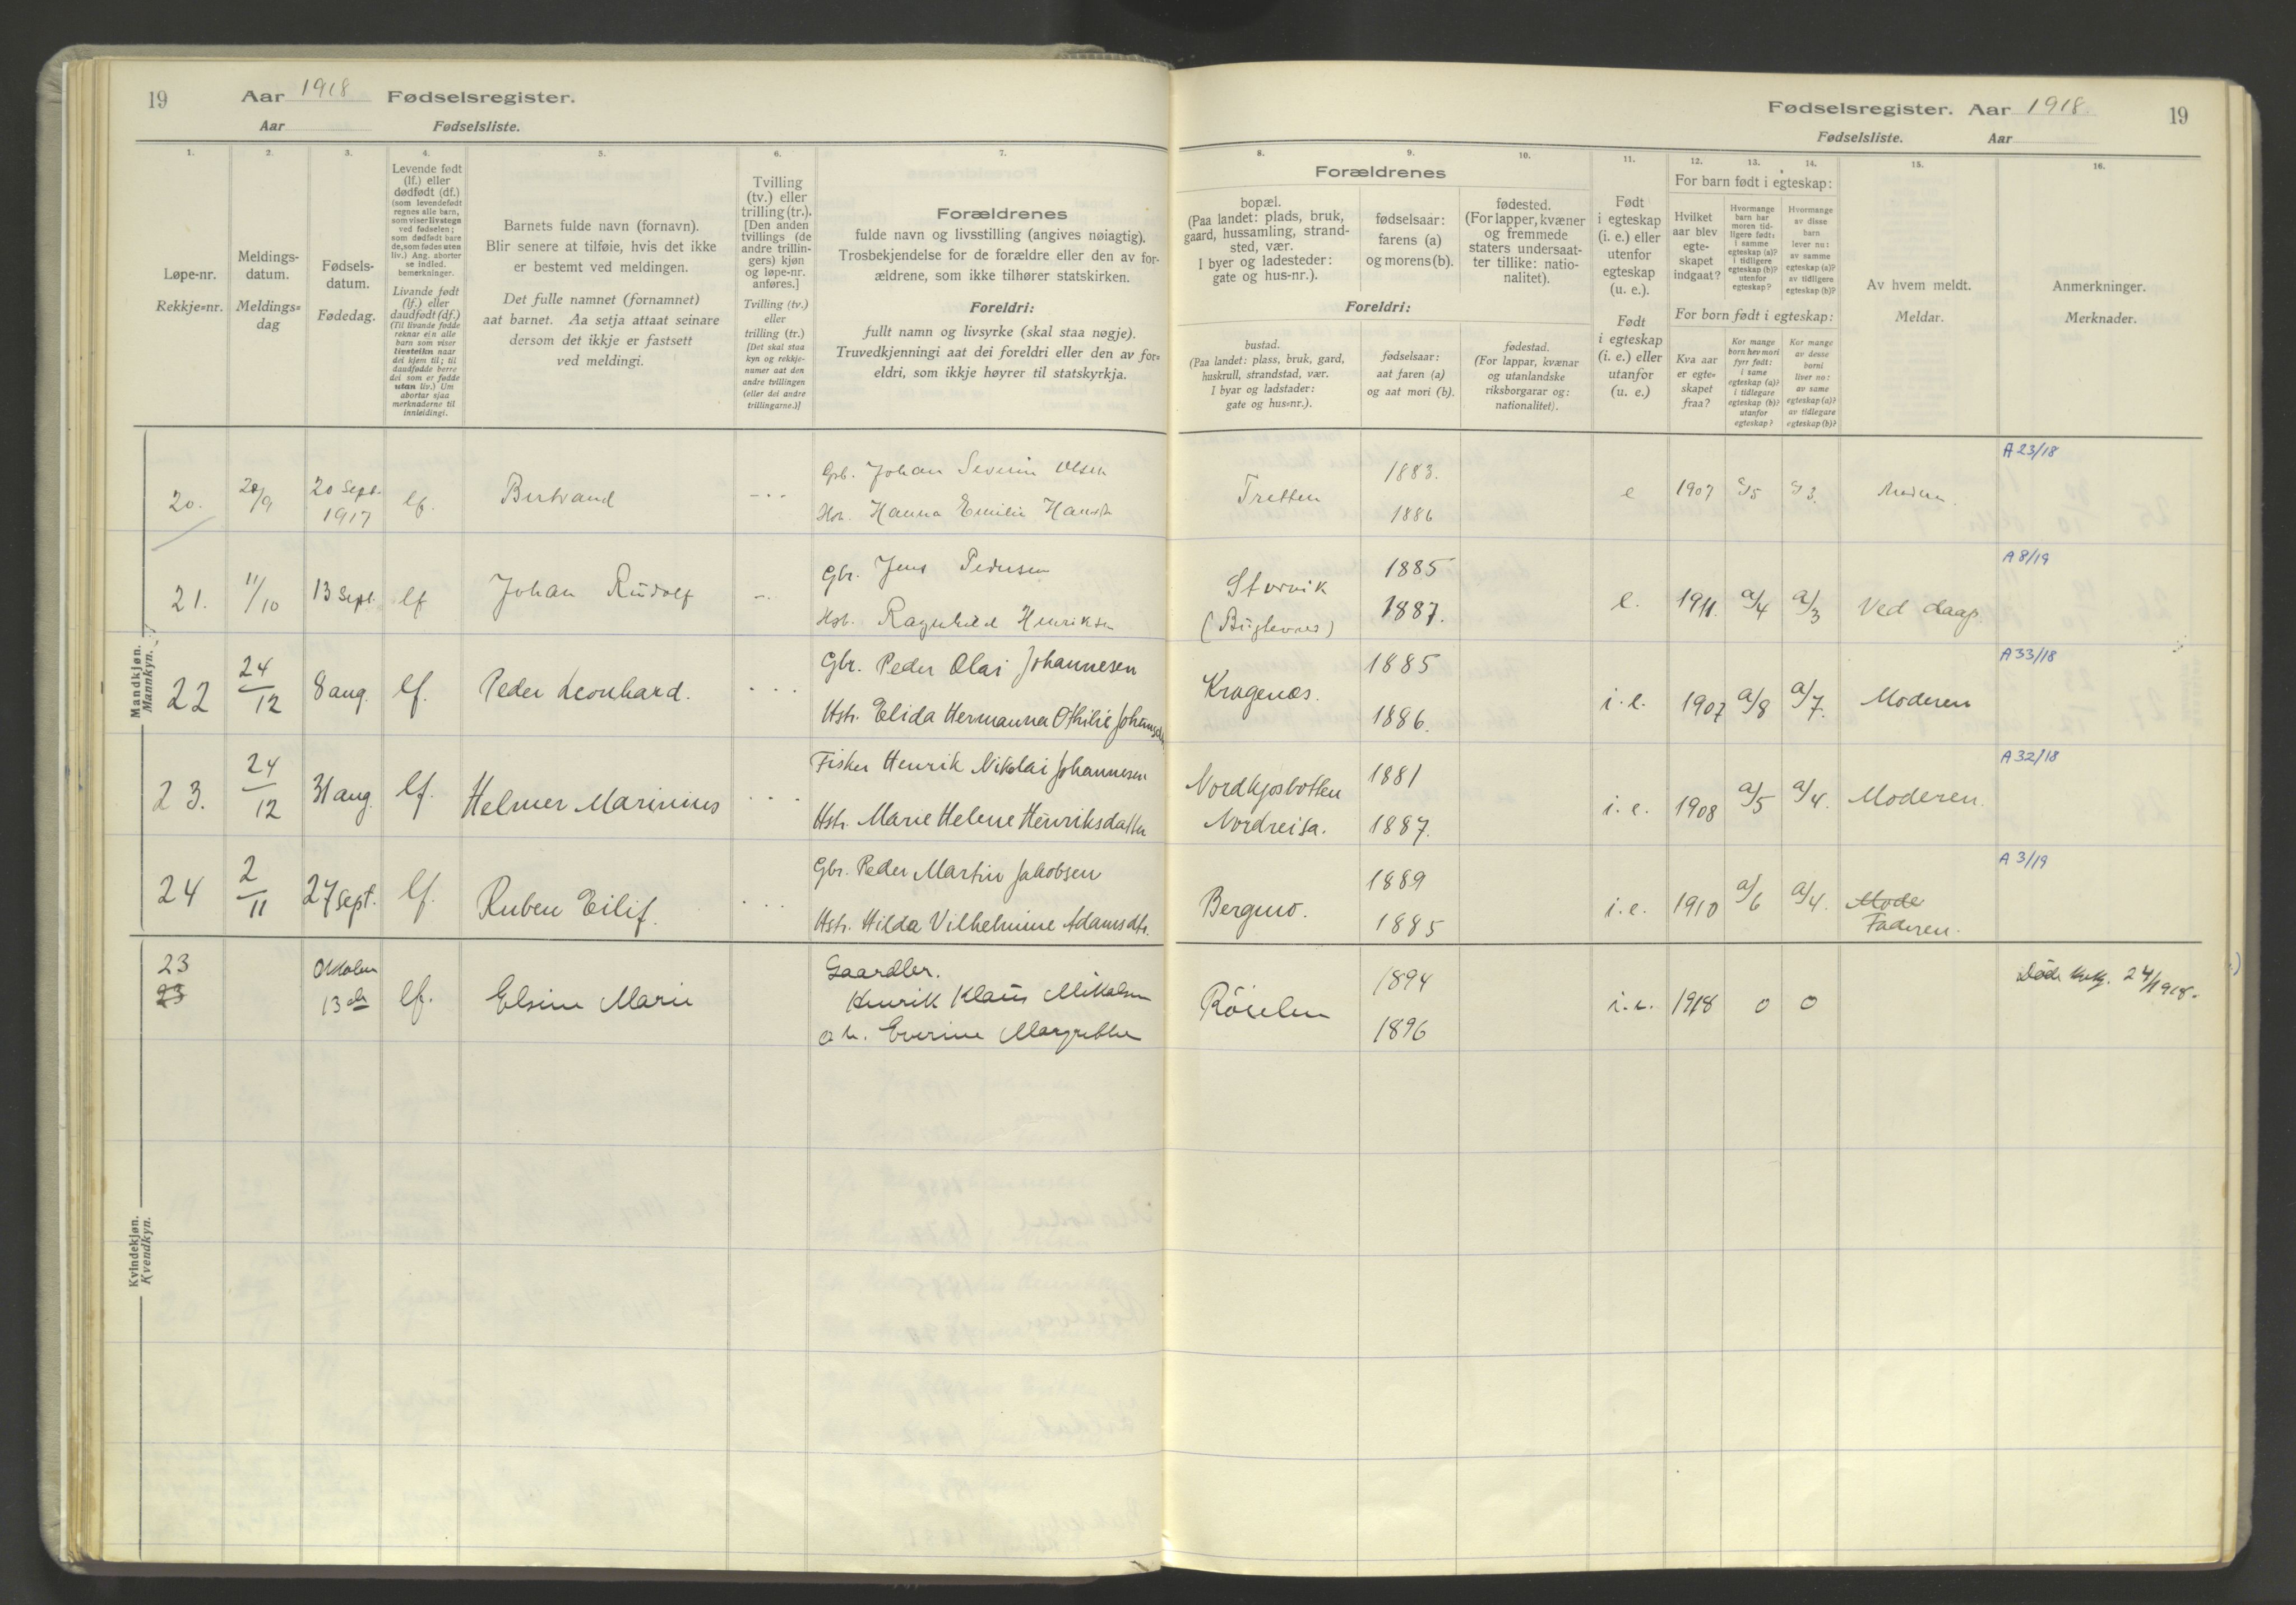 19 Aar 1918 Fødselsregister.
Aar Fødselsliste.
1. 2. 3. 4. 5. 6. 7.
Løpe-nr.
Rekkje=nr.
Meldings-
datum.
Meldings=
dag
Fødsels-
datum.
Fødedag.
Levende født
(lf.) eller
dødfødt (df.)
(som levendefødt
regnes alle barn,
som viser livstegn
ved fødselen;
som dødfødt bare
de, som fødes uten
liv.) Ang. aborter
se indled.
bemerkninger.
Livande født
(lf.) eller
daudfødt (df.)
(Til livande fødde
reknar ein alle
barn som viser
livsteikn naar
dei kjem til; til
daudfødde berre
dei som er fødde
utan liv.) Um
abortar sjaa
merknaderne til
innleidingi.
Barnets fulde navn (fornavn).
Blir senere at tilføie, hvis det ikke
er bestemt ved meldingen.
Det fulle namnet (fornamnet)
aat barnet. Aa setja attaat seinare
dersom det ikkje er fastsett
ved meldingi.
Tvilling
(tv.) eller
trilling (tr.).
[Den anden
tvillings (de
andre trillin-
gers) kjøn
og løpe-nr.
anføres.]
Tvilling (tv.)
eller
trilling (tr.)
[Det skal staa
kyn og rekkje-
numer aat den
andre tvillingen
(eller dei andre
trillingarne.)]
Forældrenes
fulde navn og livsstilling (angives nøiagtig).
Trosbekjendelse for de forældre eller den av for-
ældrene, som ikke tilhører statskirken.
Foreldri:
fullt namn og livsyrke (skal staa nøgje).
Truvedkjenningi aat dei foreldri eller den av for=
eldri, som ikkje høyrer til statskyrkja.
Mandkjøn.
Mannkyn.
20. 20/9 20 Sept. 1917 lf. Bertrand
Gbr. Johan Severin Olsen
Hst. Hanna Emilie
21. 11/10 13 Sept. lf Johan Rudolf
Gbr. Jens Pedersen
Hst. Ragnhild Henriksen
22 24/12 8 aug. lf. Peder Leonhard.
Gbr. Peder Olai Johannesen
Hstr. Elida Hermanna Othilie
23. 24/12 31 aug. lf. Helmer Marinius
Fisker Henrik Nikolai Johannesen
Hstr. Marie Helene Henriksdatter
24 2/11 27 sept. lf. Ruben Eilif.
Gbr. Peder Martin Jakobsen
Hstr. Hilda Vilhelmine Adamsdtr.
Kvindekjøn.
Kvendkyn.
23
23 13de lf. Elsine Marie
Gaardbr.
Henrik Klaus Mikalsen
o h. Everine Margrethe
Fødselsregister. Aar 1918. 19
Fødselsliste. Aar
8. 9. 10. 11. 12. 13. 14. 15. 16.
Forældrenes
bopæl.
(Paa landet: plads, bruk,
gaard, hussamling, strand-
sted, vær.
I byer og ladesteder:
gate og hus-nr.).
fødselsaar:
farens (a)
og morens (b).
fødested.
(For lapper, kvæner
og fremmede
staters undersaat-
ter tillike: natio-
nalitet).
Foreldri:
bustad.
(Paa landet: plass, bruk, gard,
huskrull, strandstad, vær.
I byar og ladstader:
gate og hus=nr.).
fødselsaar:
aat faren (a)
og aat mori (b).
fødestad.
(For lappar, kvænar
og utanlandske
riksborgarar og:
nationalitet).
Født
i egteskap
(i. e.) eller
utenfor
egteskap
(u. e.).
Født
i egteskap
(i. e.) eller
utanfor
(u. e.)
For barn født i egteskap:
Hvilket
aar blev
egte-
skapet
indgaat?
Hvormange
barn har
moren tid-
ligere født:
i samme
egteskap (a)?
i tidligere
egteskap (b)?
utenfor
egteskap?
Hvormange
av disse
barn
lever nu:
av samme
egteskap (a)?
av tidligere
egteskap (b)?
For born født i egteskap:
Kva aar
er egte=
skapet
fraa?
Kor mange
born hev mori
fyrr født:
i same
egteskap (a)?
i tidlegare
egteskap (b)?
utanfor
egteskap?
Kor mange
av desse
borni
liver no:
av same
egteskap (a)?
av tidlegare
egteskap (b)?
Av hvem meldt.
Meldar.
Anmerkninger.
Merknader.
A 23/18
Tretten 1883. 1886 e 1907 a/5 a/3. Moderen
A 8/19
Storvik 1885 1887. e. 1911. a/4 a/3 Ved daap.
A 33/18
Kragenæs. 1885 1886. i. e. 1907 a/8 a/7. Moderen
A 32/18
Nordkjosbotten 1881
Nordreisa. 1887. i. e. 1908 a/5 a/4. Moderen.
A 3/19
Bergmo. 1889 1885 i. e. 1910 a/6 a/4. Mode
Faderen.
Röielen 1894 1896 i. e. 1918 0 0